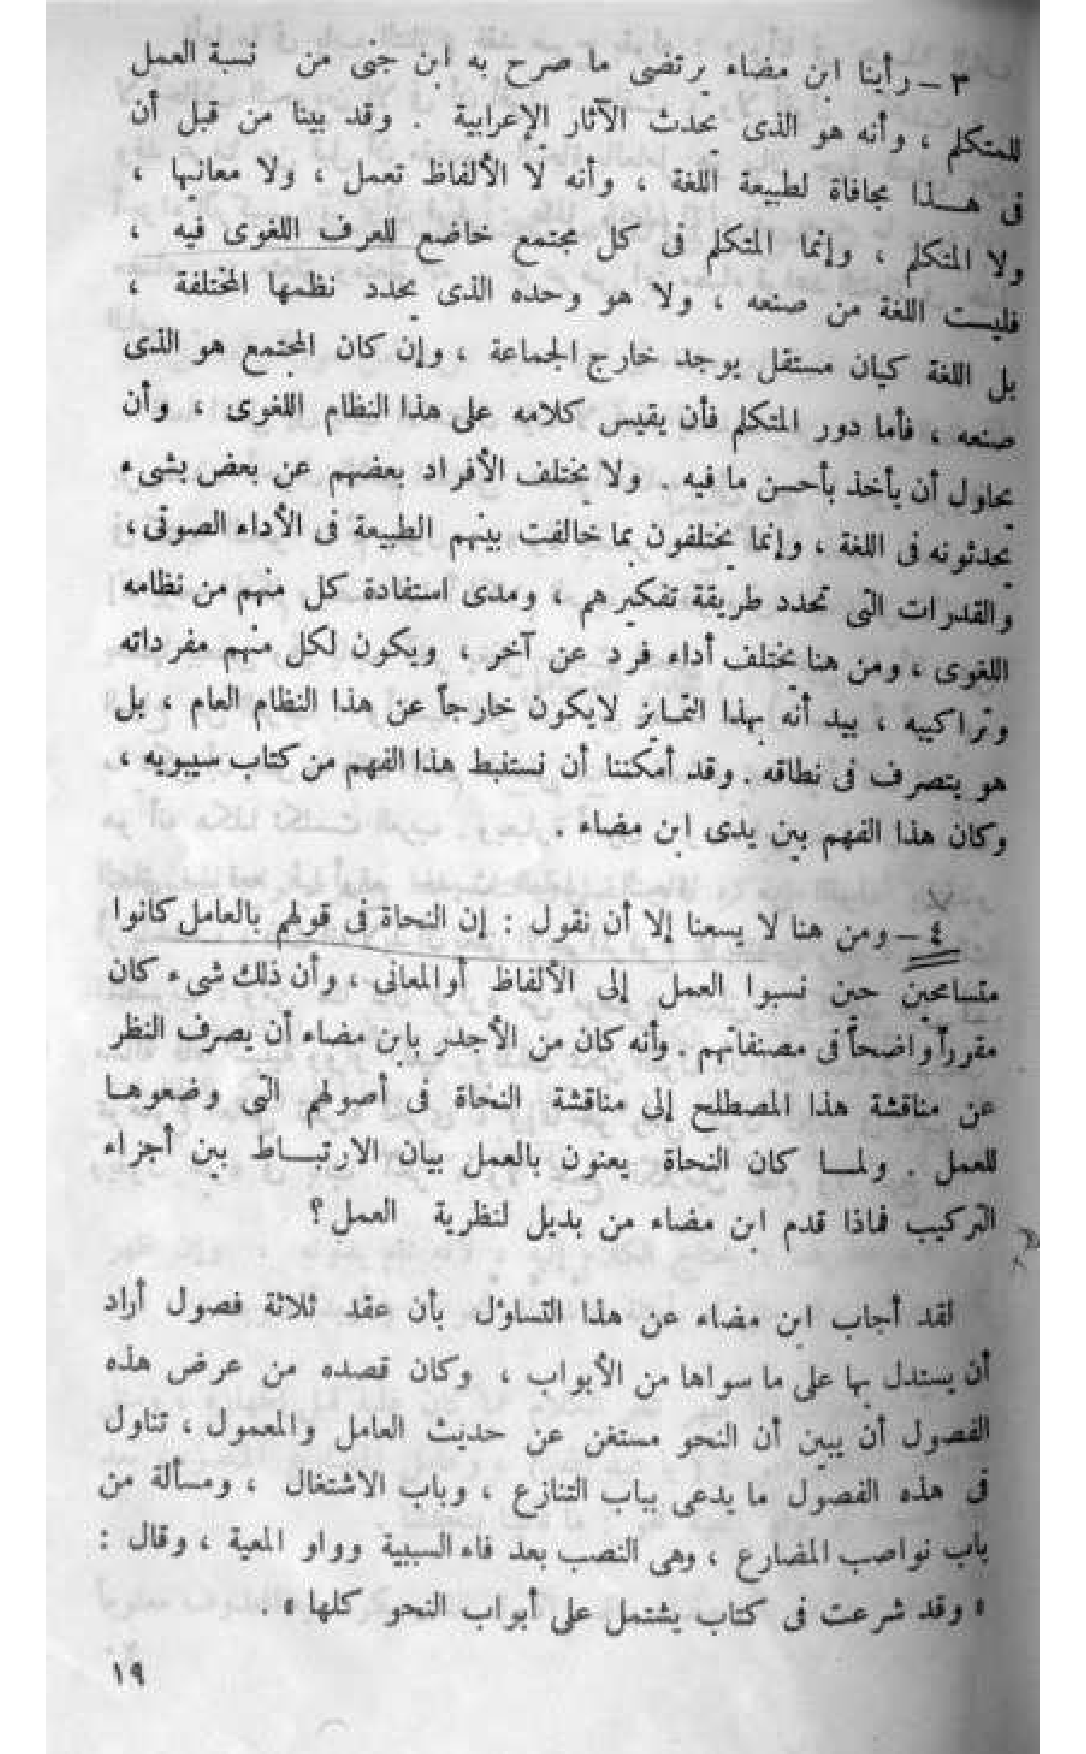 ٣ ـ رأينا ابن مضاء يرتضى ما صرح به ابن جنى من نسبة العمل
للمتكلم ، وأنه هو الذى يحدث الآثار الإعرابية . وقد بينا من قبل أن
فى هـذا مجافاة لطبيعة اللغة ، وأنه لا الألفاظ تعمل ، ولا معانيها ،
ولا المتكلم ، وإنما المتكلم فى كل مجتمع خاضع للعرف اللغوى فيه ،
فليست اللغة من صنعه ، ولا هو وحده الذى يحدد نظمها المختلفة ،
بل اللغة كيان مستقل يوجد خارج الجماعة ، وإن كان المجتمع هو الذى
صنعه ، فأما دور المتكلم فأن يقيس كلامه على هذا النظام اللغوى ، وأن
يحاول أن يأخذ بأحسن ما فيه . ولا يختلف الأفراد بعضهم عن بعض بشىء
يحدثونه فى اللغة ، وإنما يختلفون بما خالفت بينهم الطبيعة فى الأداء الصوتى ،
والقدرات التى تحدد طريقة تفكيرهم ، ومدى استفادة كل منهم من نظامه
اللغوى ، ومن هنا يختلف أداء فرد عن آخر ، ويكون لكل منهم مفرداته
وتراكيبه ، بيد أنه بهذا التمايز لايكون خارجاً عن هذا النظام العام ، بل
هو يتصرف فى نطاقه . وقد أمكننا أن نستنبط هذا الفهم من كتاب سيبويه ،
وكان هذا الفهم بين يدى ابن مضاء .
٤ ـ ومن هنا لا يسعنا إلا أن نقول : إن النحاة فى قولهم بالعامل كانوا
متسامحين حين نسبوا العمل إلى الألفاظ أوالمعانى ، وأن ذلك شىء كان
مقرراً واضحاً فى مصنفاتهم . وأنه كان من الأجدر بابن مضاء أن يصرف النظر
عن مناقشة هذا المصطلح إلى مناقشة النحاة فى أصولهم التى وضعوهـا
للعمل . ولمـا كان النحاة يعنون بالعمل بيان الارتبـاط بين أجزاء
التركيب فماذا قدم ابن مضاء من بديل لنظرية العمل ؟
لقد أجاب ابن مضاء عن هذا التساؤل بأن عقد ثلاثة فصول أراد
أن يستدل بها على ما سواها من الأبواب ، وكان قصده من عرض هذه
الفصول أن يبين أن النحو مستغن عن حديث العامل والمعمول ، تناول
فى هذه الفصول ما يدعى بباب التنازع ، وباب الاشتغال ، ومسألة من
باب نواصب المضارع ، وهى النصب بعد فاء السببية وواو المعية ، وقال :
« وقد شرعت فى كتاب يشتمل على أبواب النحو كلها » .
١٩